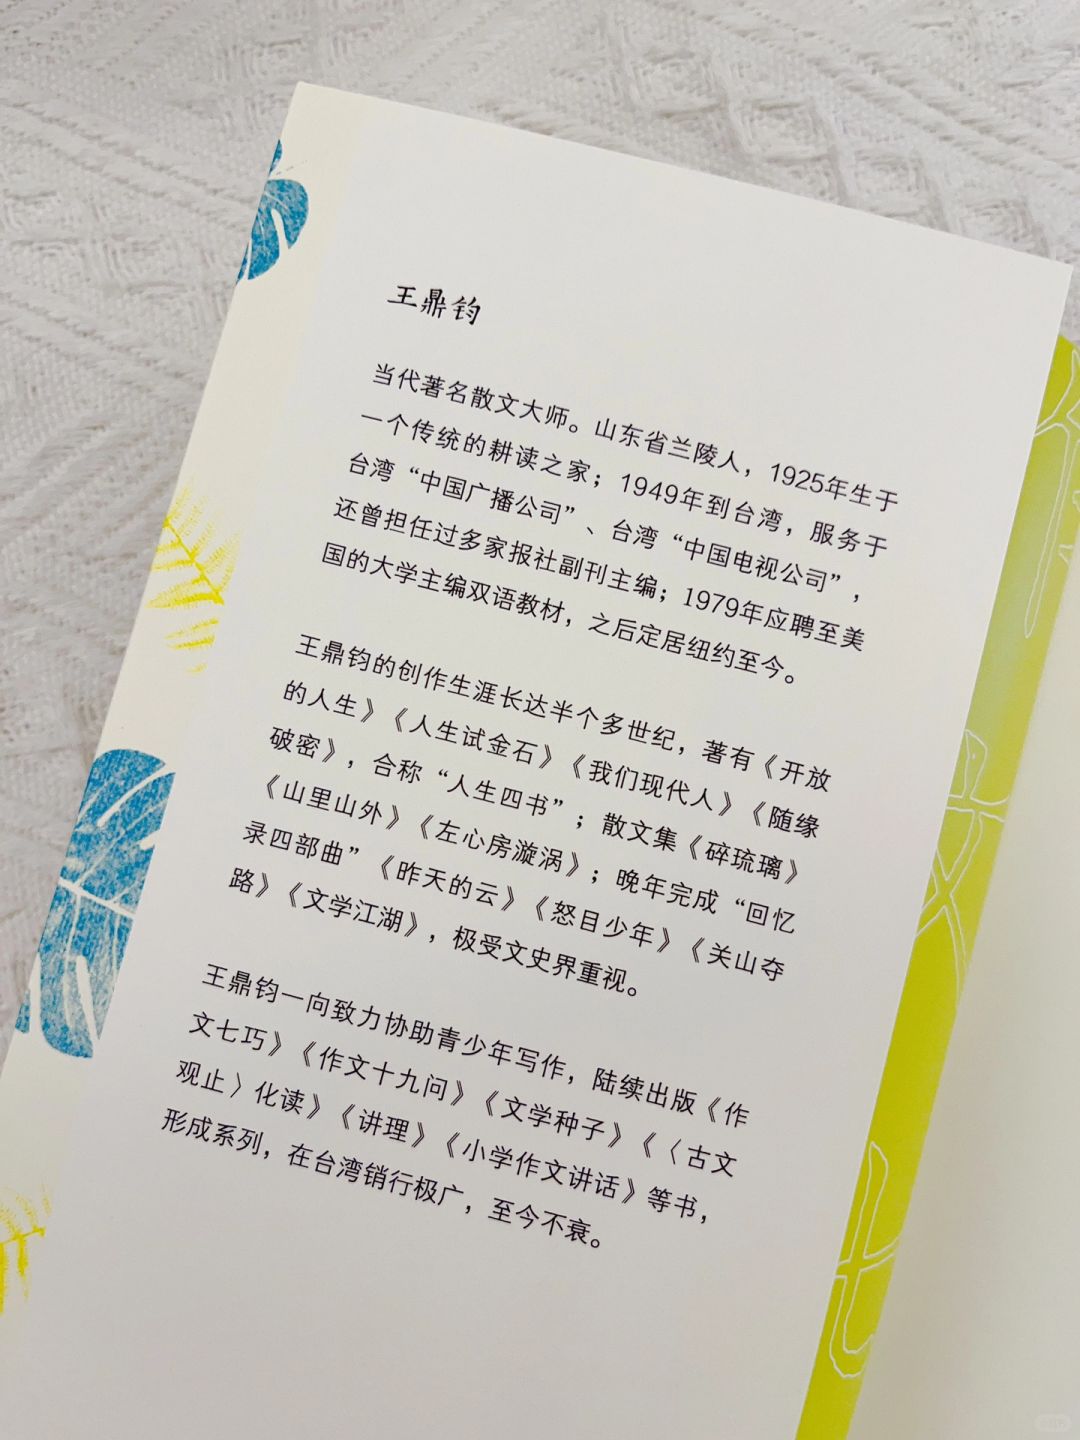 王鼎钧
当代著名散文大师。山东省兰陵人，1925年生于
一个传统的耕读之家；1949年到台湾，服务于
台湾“中国广播公司”、台湾“中国电视公司”，
还曾担任过多家报社副刊主编；1979年应聘至美
国的大学主编双语教材，之后定居纽约至今。
王鼎钧的创作生涯长达半个多世纪，著有《开放
的人生》《人生试金石》《我们现代人》《随缘
破密》，合称“人生四书”；散文集《碎琉璃》
《山里山外》《左心房漩涡》；晚年完成“回忆
录四部曲”《昨天的云》《怒目少年》《关山夺
路》《文学江湖》，极受文史界重视。
王鼎钧一向致力协助青少年写作，陆续出版《作
文七巧》《作文十九问》《文学种子》《〈古文
观止〉化读》《讲理》《小学作文讲话》等书，
形成系列，在台湾销行极广，至今不衰。